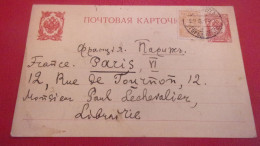 ПОЧТОВАЯ КАРТОЧКА
Франція. Парижъ.
France. Paris, VI
12, Rue de Tournon, 12.
Monsieur Paul Lechevalier,
Librairie